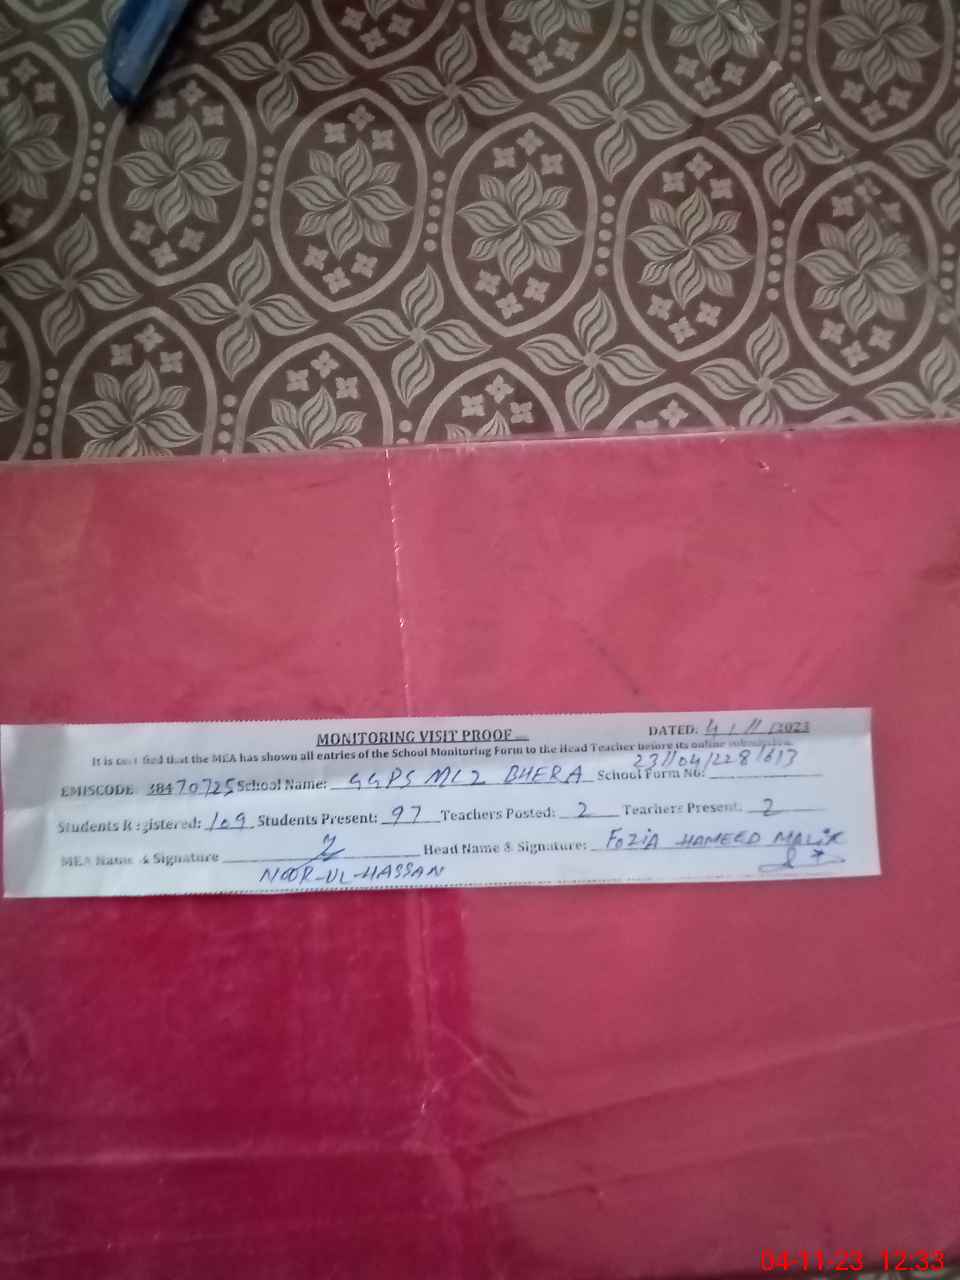 MONITORING VISIT PROOF
DATED: 4 / 11 /2023
It is certified that the MEA has shown all entries of the School Monitoring Form to the Head Teacher before its online submission.
EMISCODE: 38470725 School Name: GGPS MC2 BHERA School Form No: 231104/228/613
Students Registered: 109 Students Present: 97 Teachers Posted: 2 Teachers Present: 2
MEA Name & Signature Head Name & Signature: FOZIA HAMEED MALIK
NOOR-UL-HASSAN
04-11-23 12:33